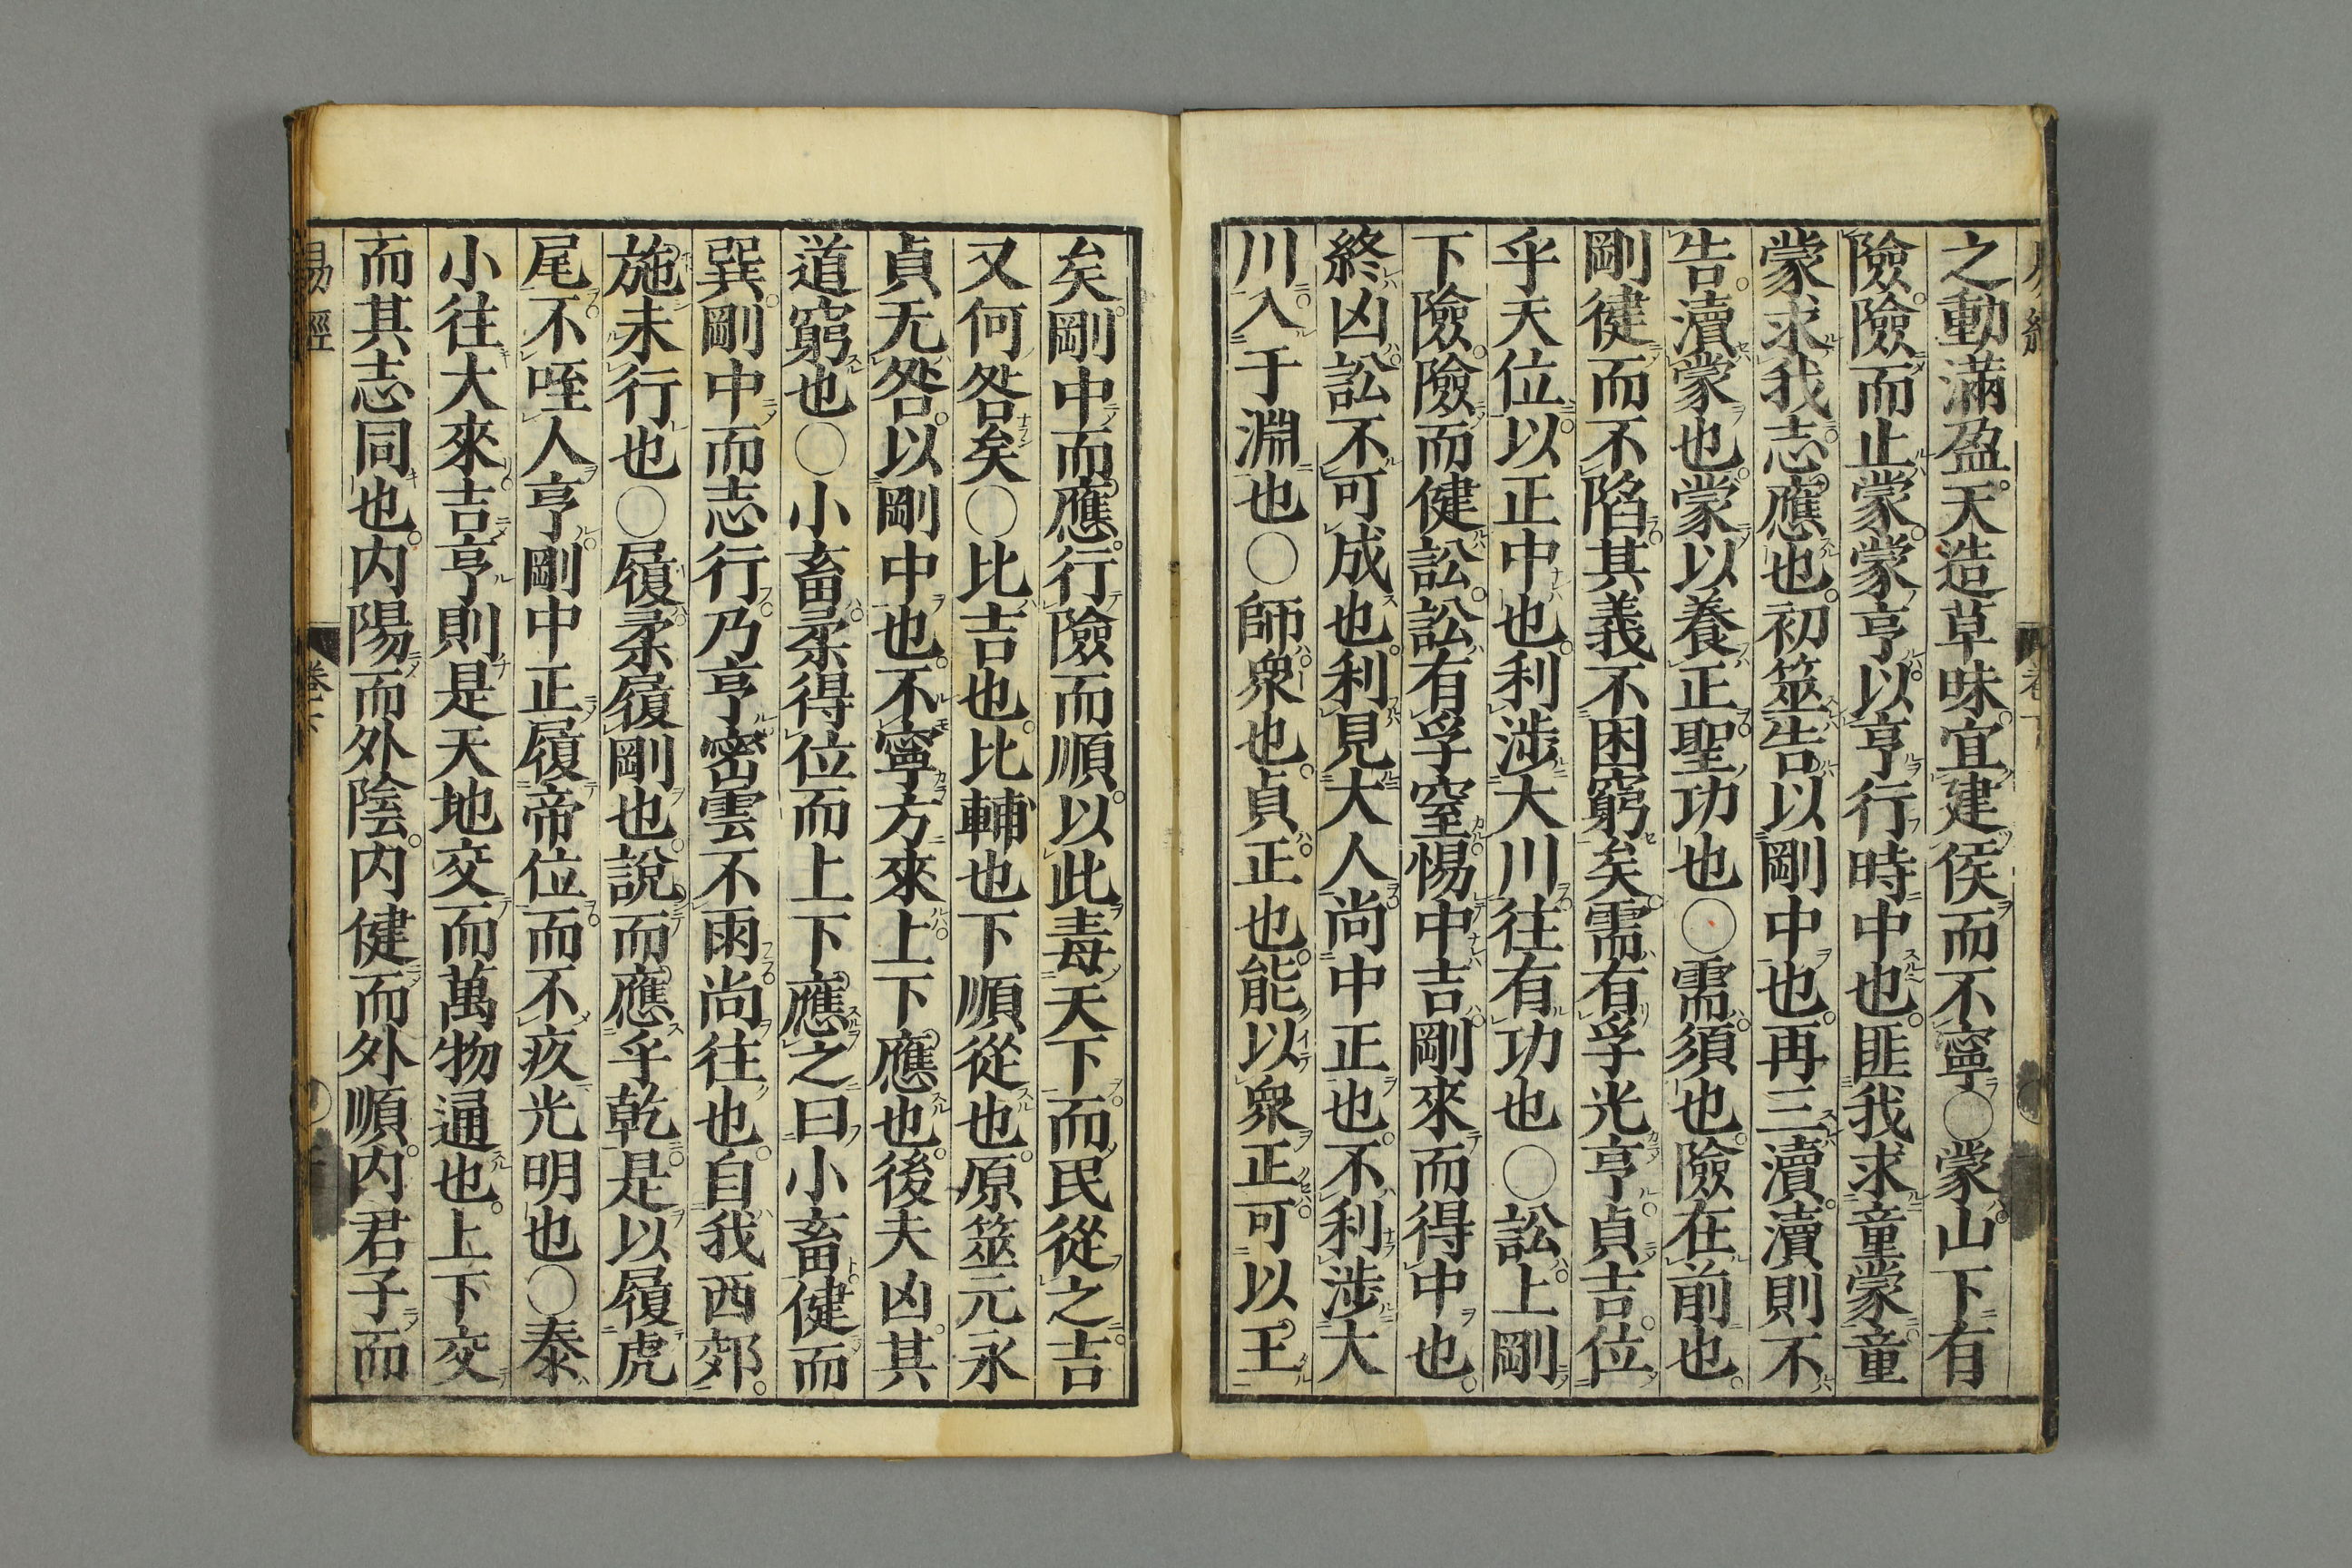 之動滿盈天造草昧宜建侯而不寧○蒙山下有
險險而止蒙蒙亨以亨行時中也匪我求童蒙童
蒙求我志應也初筮告以剛中也再三瀆瀆則不
告瀆蒙也蒙以養正聖功也○需須也險在前也
剛健而不陷其義不困窮矣需有孚光亨貞吉位
乎天位以正中也利涉大川往有功也○訟上剛
下險險而健訟訟有孚窒惕中吉剛來而得中也
終凶訟不可成也利見大人尚中正也不利涉大
川入于淵也○師衆也貞正也能以衆正可以王
矣剛中而應行險而順以此毒天下而民從之吉
又何咎矣○比吉也比輔也下順從也原筮元永
貞无咎以剛中也不寧方來上下應也後夫凶其
道窮也○小畜柔得位而上下應之曰小畜健而
巽剛中而志行乃亨密雲不雨尚往也自我西郊
施未行也○履柔履剛也說而應乎乾是以履虎
尾不咥人亨剛中正履帝位而不疚光明也○泰
小往大來吉亨則是天地交而萬物通也上下交
而其志同也内陽而外陰内健而外順内君子而
易經
卷下